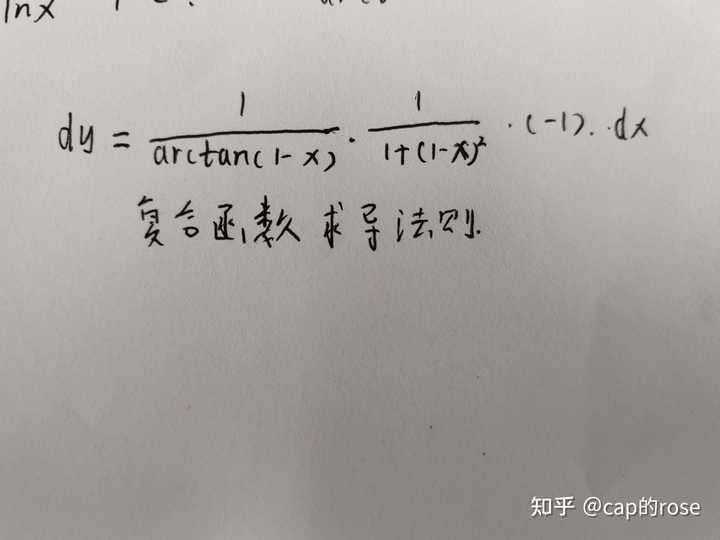 lnx
dy = \frac{1}{arctan(1-x)} · \frac{1}{1+(1-x)^2} · (-1). dx
复合函数求导法则.
知乎 @cap的rose